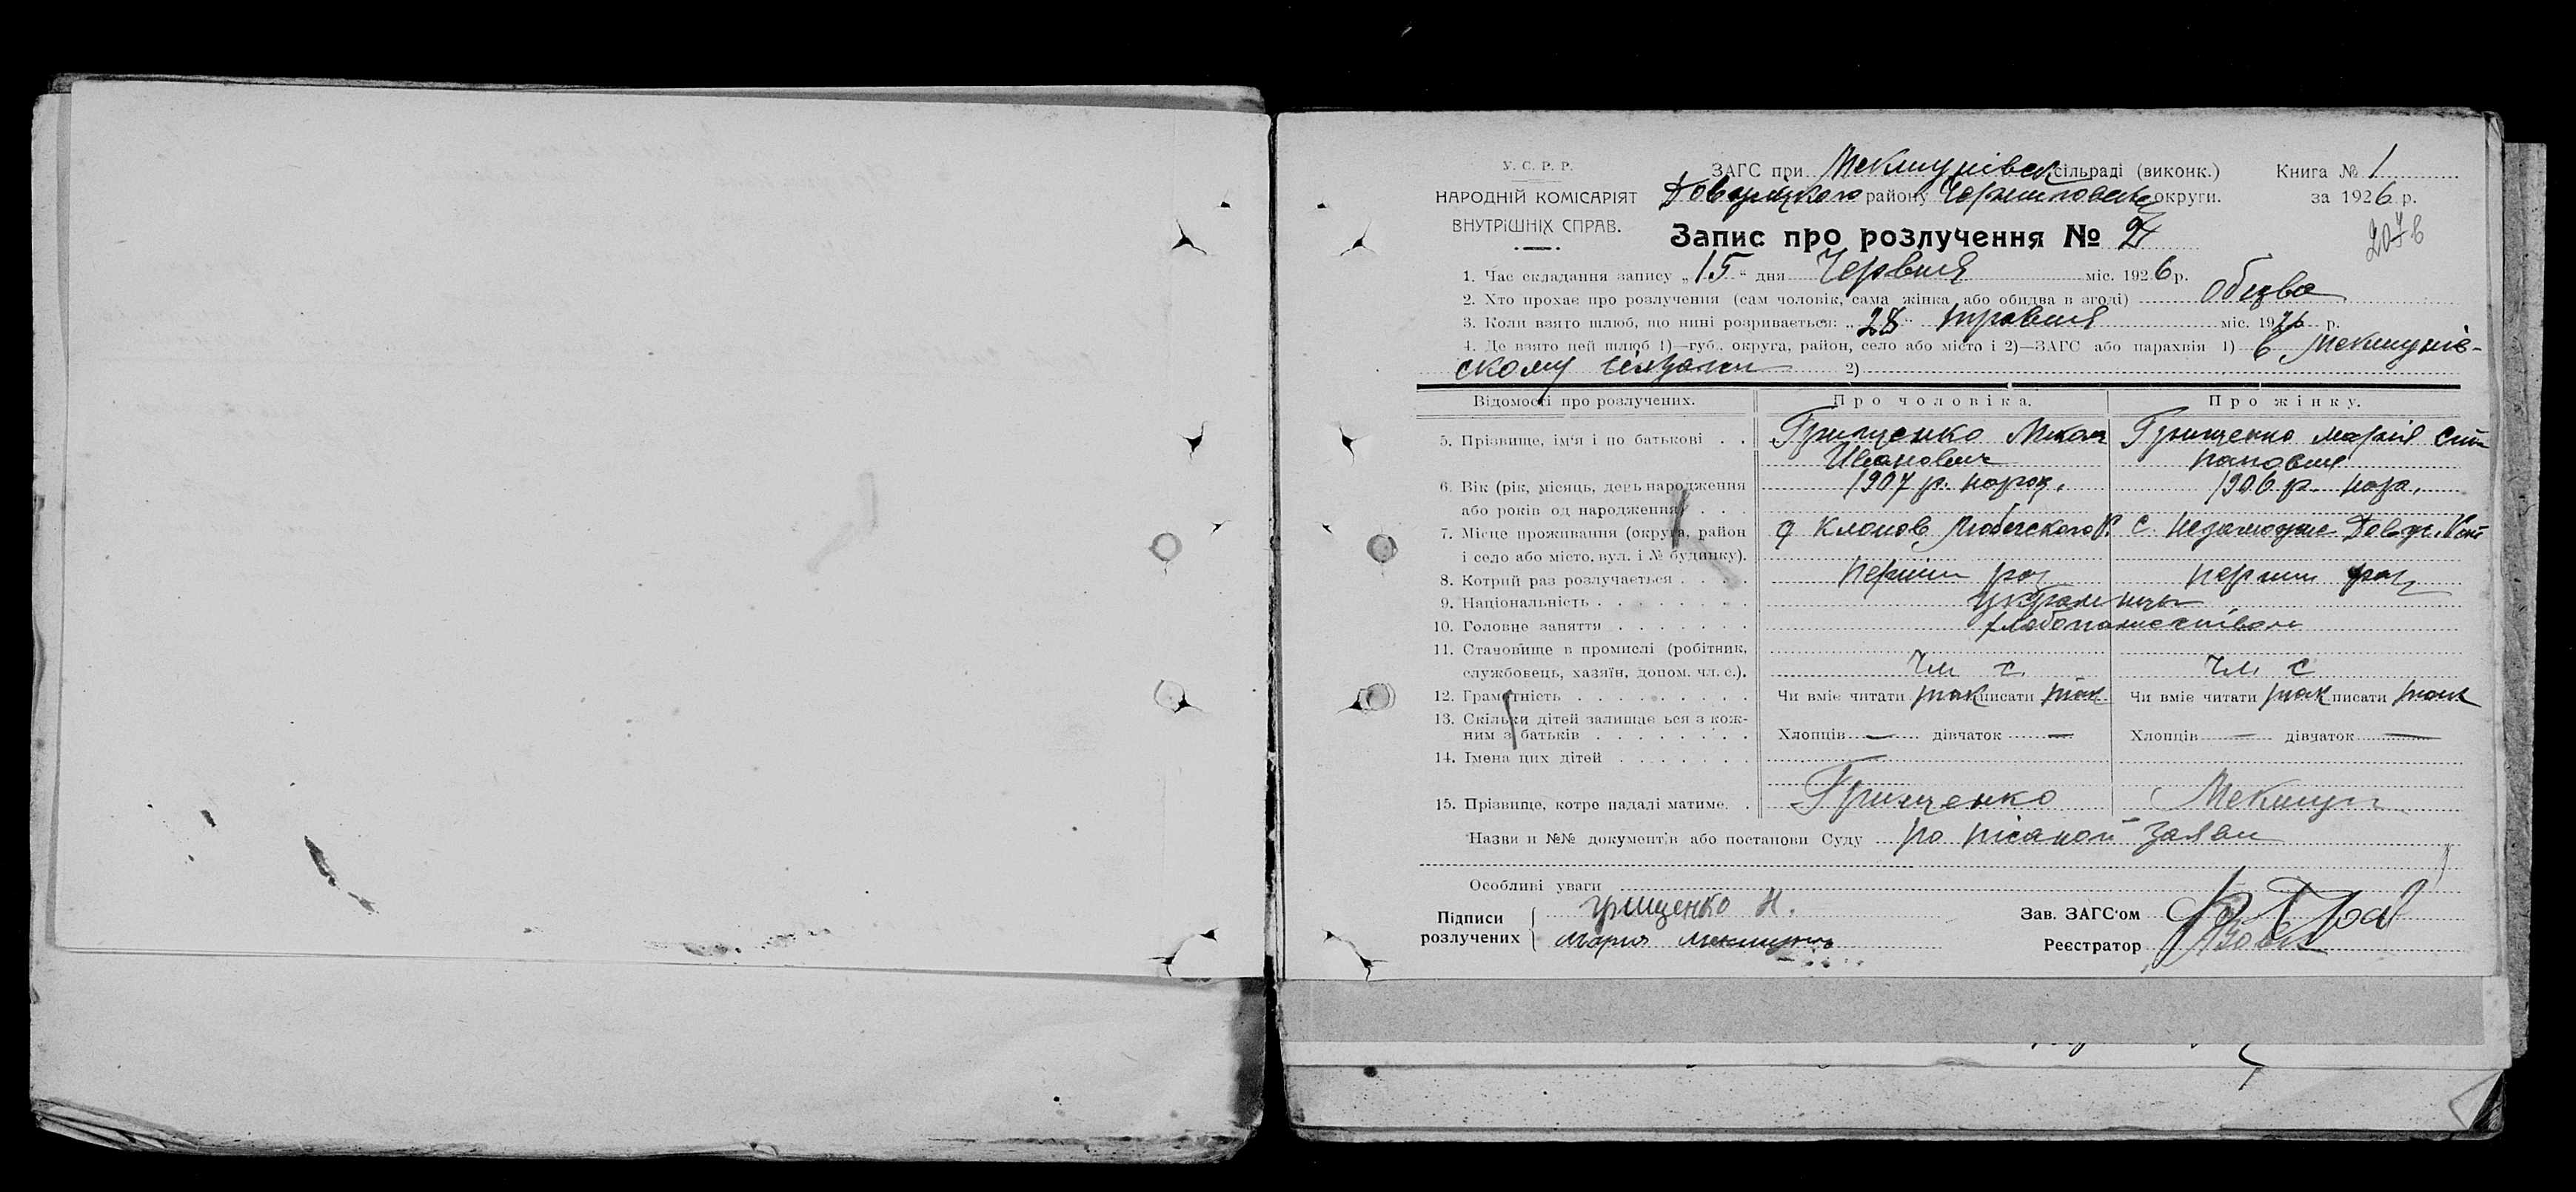 У. С. Р. Р.
НАРОДНІЙ КОМІСАРІЯТ
ВНУТРІШНІХ СПРАВ.
ЗАГС при Мекшунівск сільраді (виконк.)
району округи.
Книга № 1
за 1926 р.
Запис про розлучення №
207в
1. Час складання запису „15" дня Червня міс. 1926 р.
2. Хто прохає про розлучення (сам чоловік, сама жінка або обидва в згоді) Обидва
3. Коли взято шлюб, що нині розривається: „28" травня міс. 1926 р.
4. Де взято цей шлюб 1)—губ., округа, район, село або місто і 2)—ЗАГС або парахвія 1) в Мекшунів-
скому 2)
Відомості про розлучених. Про чоловіка. Про жінку.
5. Прізвище, ім'я і по батькові . . Грищенко Микол Грищенко Марія Сті
Иванович пановня
6. Вік (рік, місяць, день народження 1907 р. народ. 1906 р. нар.
або років од народження) . . .
7. Місце проживання (округа, район Клонов Любечского Р. с.
і село або місто, вул. і № будинку).
8. Котрий раз розлучається . . . . перший раз перший раз
9. Національність . . . . . . . українці
10. Головне заняття . . . . . . .
11. Становище в промислі (робітник,
службовець, хазяїн, допом. чл. с.). Чл. с. Чл. с
12. Грамотність . . . . . . . . . Чи вміє читати так писати так. Чи вміє читати так писати так
13. Скільки дітей залишає ься з кож-
ним з батьків . . . . . . . . Хлопців — дівчаток — Хлопців — дівчаток —
14. Імена цих дітей . . . . . . .
15. Прізвище, котре надалі матиме. . Грищенко Мекшун
Назви и №№ документів або постанови Суду по пісаной заяви
Особливі уваги
Підписи
розлучених
Грищенко Н.
Мария Мекшунъ
Зав. ЗАГС'ом
Реєстратор